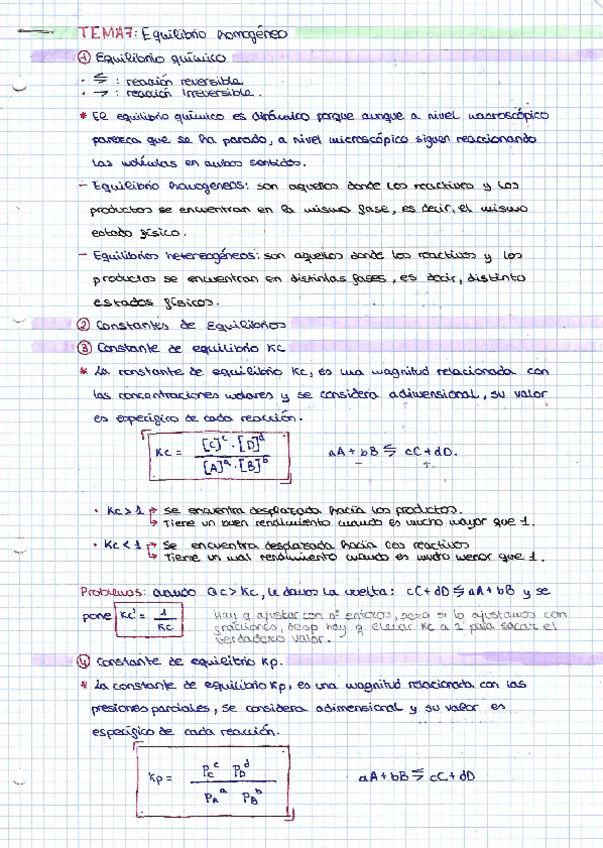 TEMA7: Equilibrio homogéneo
① Equilibrio químico
· ⇆ : reacción reversible
· → : reacción irreversible.
* El equilibrio químico es dinámico porque aunque a nivel macroscópico
parezca que se ha parado, a nivel microscópico siguen reaccionando
las moléculas en ambos sentidos.
- Equilibrio homogéneos: son aquellos donde los reactivos y los
productos se encuentran en la misma fase, es decir, el mismo
estado físico.
- Equilibrios hetereogéneos: son aquellos donde los reactivos y los
productos se encuentran en distintas fases, es decir, distinto
estados físicos.
② Constantes de equilibrios
③ Constante de equilibrio Kc
* La constante de equilibrio Kc, es una magnitud relacionada con
las concentraciones molares y se considera adimensional, su valor
es específico de cada reacción.
Kc = [C]^c · [D]^d / [A]^a · [B]^b    aA + bB ⇆ cC + dD.
· Kc > 1 → Se encuentra desplazada hacia los productos.
→ Tiene un buen rendimiento cuando es mucho mayor que 1.
· Kc < 1 → Se encuentra desplazada hacia los reactivos
→ Tiene un mal rendimiento cuando es mucho menor que 1.
Problemas: cuando Qc > Kc, le damos la vuelta: cC + dD ⇆ aA + bB y se
pone Kc' = 1 / Kc    Hay q ajustar con nº enteros, pero si lo ajustamos con
fraciones, desp hay q elevar Kc a 2 para sacar el
verdadero valor.
④ Constante de equilibrio Kp.
* La constante de equilibrio Kp, es una magnitud relacionada con las
presiones parciales, se considera adimensional y su valor es
específico de cada reacción.
Kp = P_C^c P_D^d / P_A^a P_B^b    aA + bB ⇆ cC + dD